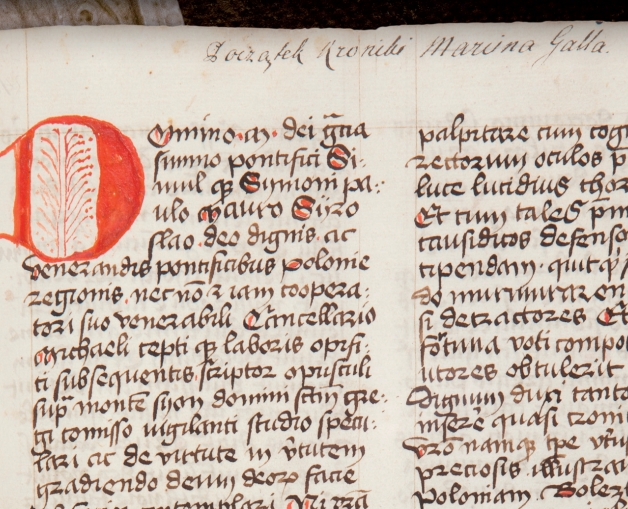 Początek Kroniki Marcina Galla.
Domino. M. dei gr̄cia
summo pontifici Si-
mul qꝫ Simoni pa-
ulo Mauro Siro
slao. deo dignis. ac
venerandis pontificibus polonie
regionis. nec nō ⁊ iam coopera-
tori suo venerabili Cancellario
Michaeli cepti qꝫ laboris opifi-
ci subsequentis scriptor opusculi
sup̄ montē sijon domini
gi comisso vigilanti studio specu-
lari ac de virtute in v̄tutem
gradiendo deum deorꝫ facie
palpitare cum
rectorum oculos
luce lucidius
Et cum tales
causidicos
do murmurare
si detractores Et
fortuna voti
utores obtulerit
Dignum duci
inserē quasi
vrō namqꝫ
preciosis illustra
Poloniam. Bolez